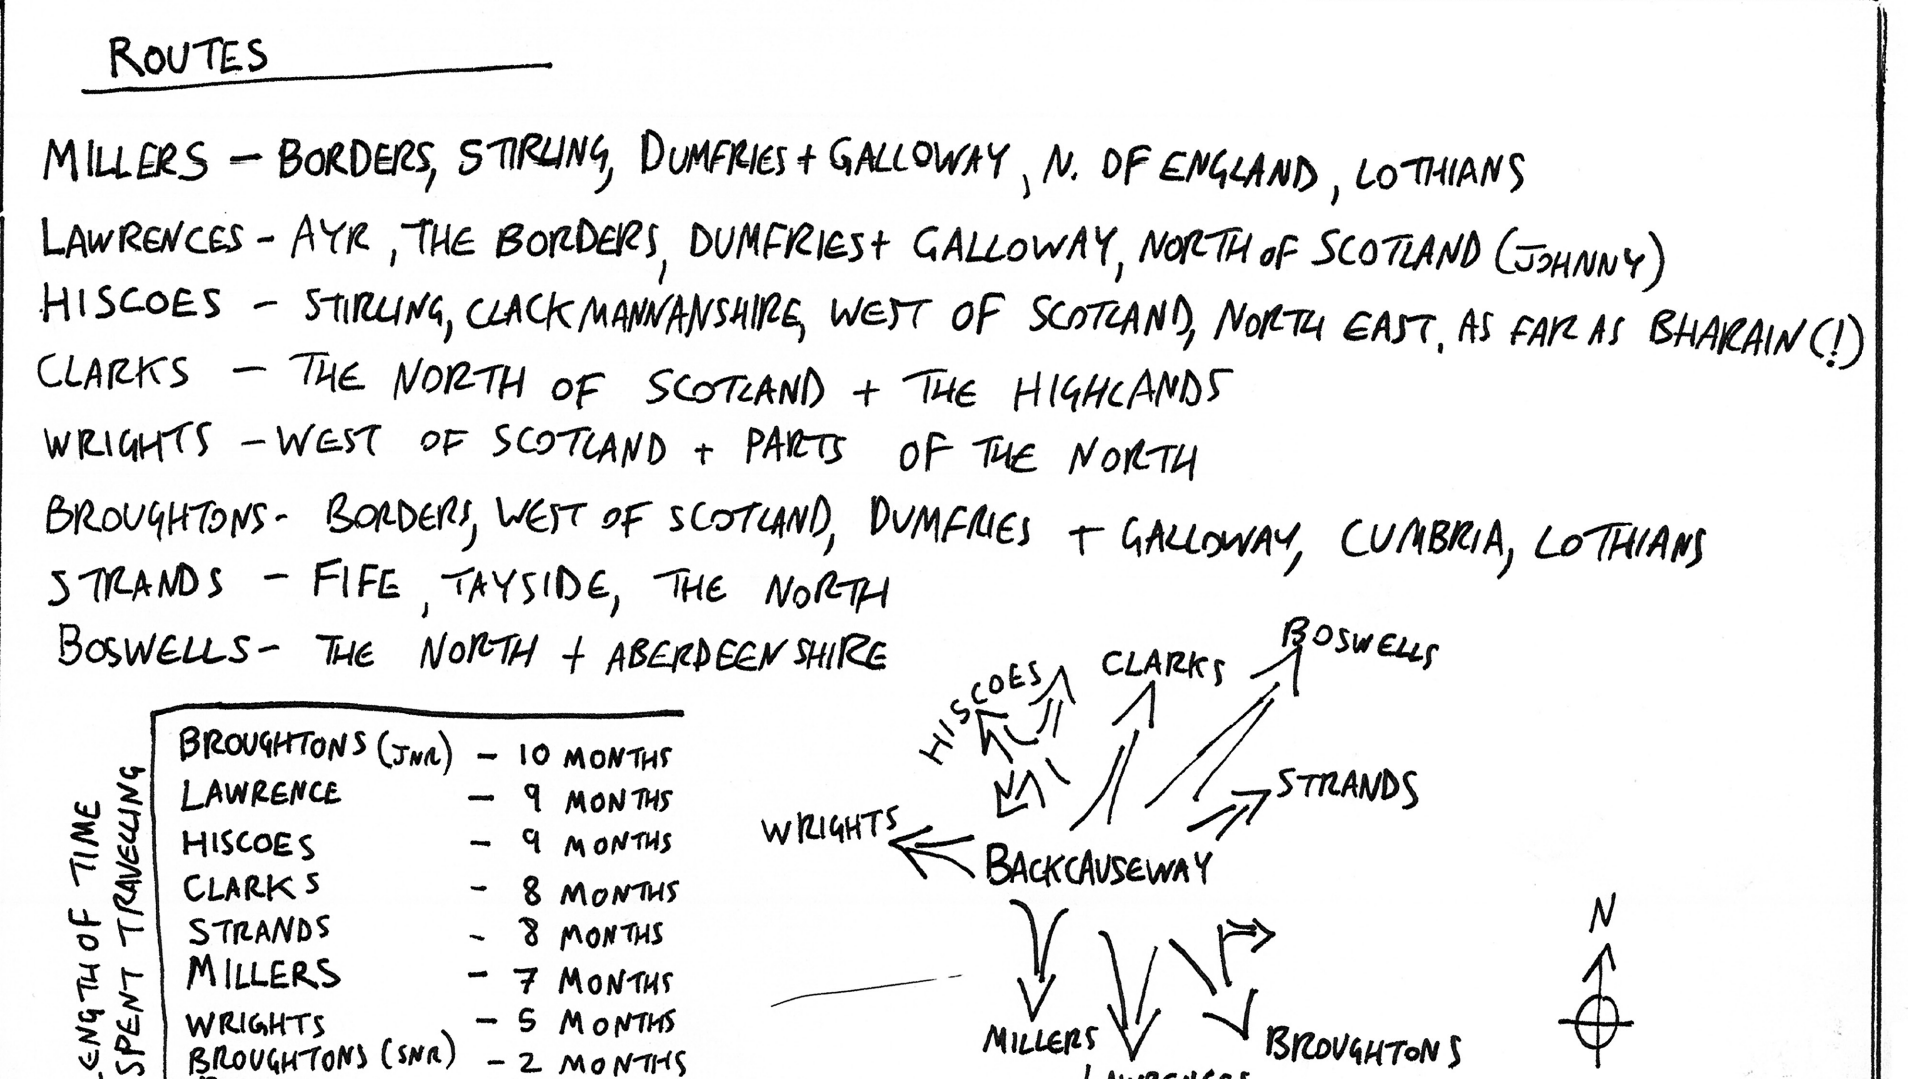 ROUTES
MILLERS - BORDERS, STIRLING, DUMFRIES + GALLOWAY, N. OF ENGLAND, LOTHIANS
LAWRENCES - AYR, THE BORDERS, DUMFRIES + GALLOWAY, NORTH OF SCOTLAND (JOHNNY)
HISCOES - STIRLING, CLACKMANNANSHIRE, WEST OF SCOTLAND, NORTH EAST. AS FAR AS BHARAIN (!)
CLARKS - THE NORTH OF SCOTLAND + THE HIGHLANDS
WRIGHTS - WEST OF SCOTLAND + PARTS OF THE NORTH
BROUGHTONS - BORDERS, WEST OF SCOTLAND, DUMFRIES + GALLOWAY, CUMBRIA, LOTHIANS
STRANDS - FIFE, TAYSIDE, THE NORTH
BOSWELLS - THE NORTH + ABERDEENSHIRE
LENGTH OF TIME
SPENT TRAVELLING
BROUGHTONS (JNR) - 10 MONTHS
LAWRENCE - 9 MONTHS
HISCOES - 9 MONTHS
CLARKS - 8 MONTHS
STRANDS - 8 MONTHS
MILLERS - 7 MONTHS
WRIGHTS - 5 MONTHS
BROUGHTONS (SNR) - 2 MONTHS
HISCOES
CLARKS
BOSWELLS
STRANDS
WRIGHTS
BACKCAUSEWAY
MILLERS
LAWRENCES
BROUGHTONS
N